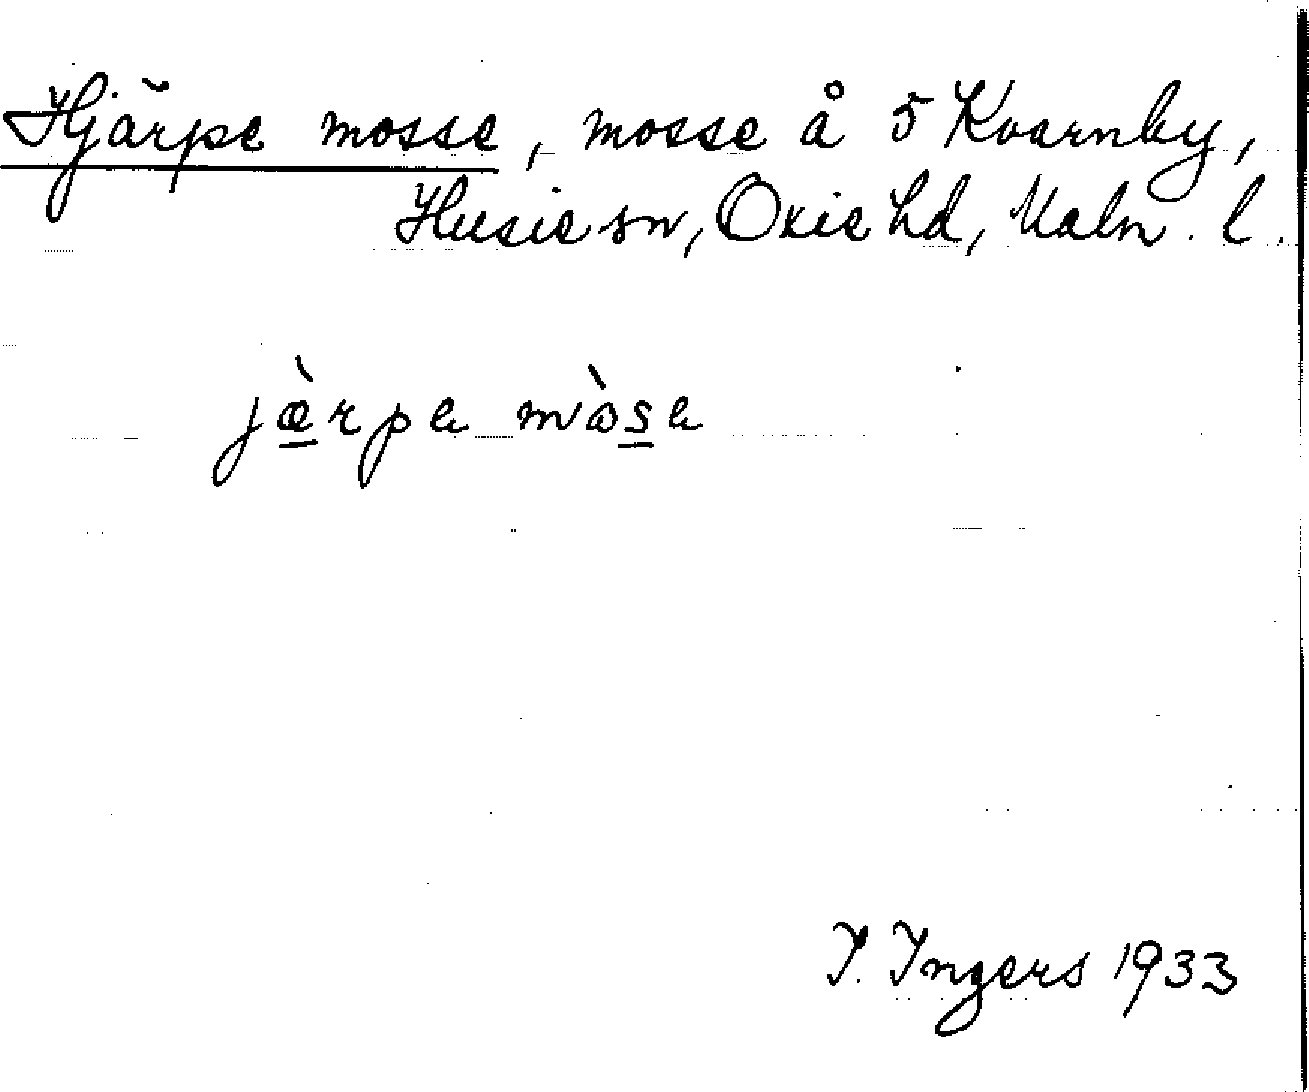 Hjärpe mosse, mosse å 5 Kvarnby,
Husie sn, Oxie hd, Malm. l.
jæ̀rpe mòse
I. Ingers 1933